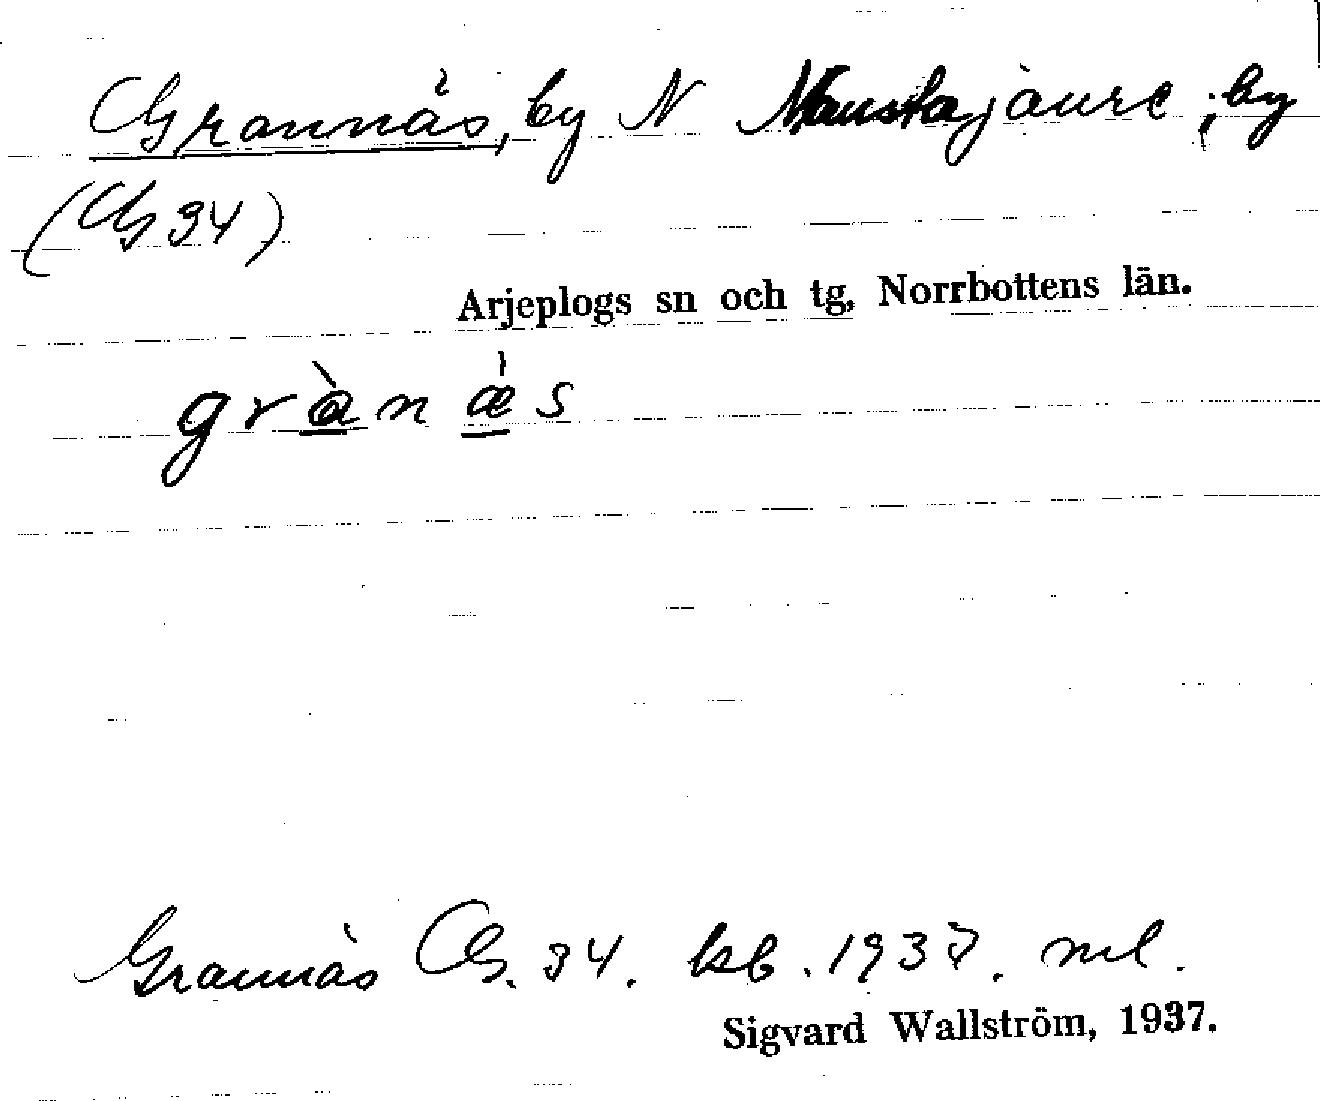 Grannäs, by N Maustajaure, by
(G 34)
Arjeplogs sn och tg, Norrbottens län.
grànǽs
Grannäs G. 34. ksb. 1937. ml.
Sigvard Wallström, 1937.